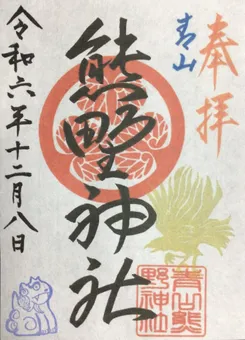 奉拝
青山
熊野神社
令和六年十二月八日
青山熊
野神社